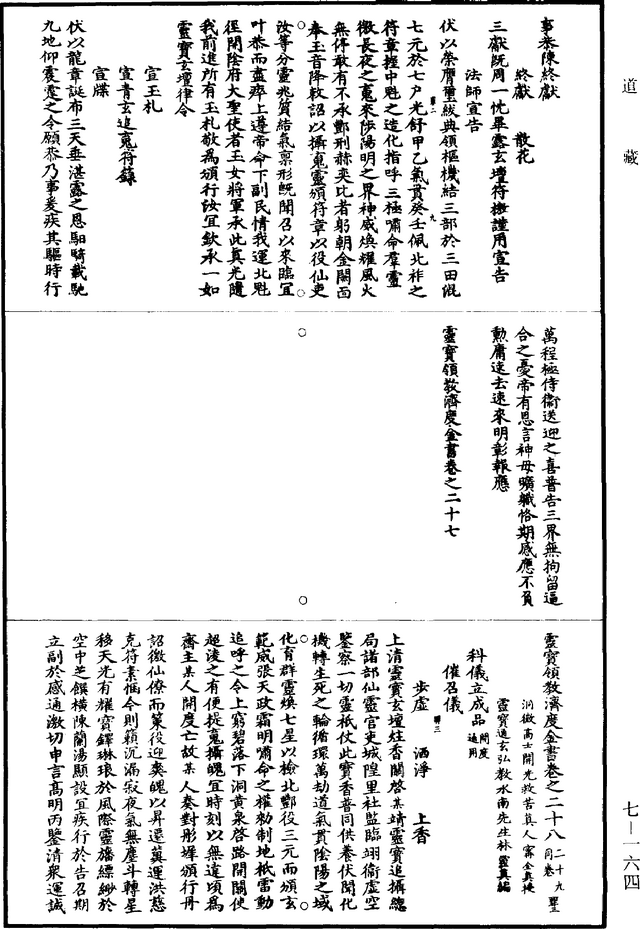 道藏
事恭陳終獻
終獻　散花
三獻既周一忱畢露玄壇符檄謹用宣告
法師宣告
伏以榮膺璽紱典領樞機結三部於三田混
七元於七戶光舒甲乙氣貫癸壬佩北祚之
符章握中魁之造化指呼三極嘯命羣靈
徹長夜之寬來陟陽明之界神威煥耀風火
無停敢有不承酆刑赫奕比者躬朝金闕面
奉玉音降敕詔以攝寬靈頒符章以役仙吏
汝等分靈兆質結氣稟形既聞召以來臨宜
叶恭而盡瘁上遵帝命下副民情我運北魁
徑開陰府大聖使者玉女將軍承此真光隨
我前進所有玉札敬為頒行汝宜欽承一如
靈寶玄壇律令
宣玉札
宣青玄追寬符籙
宣牒
伏以龍章誕布三天垂湛露之恩馹騎載馳
九地仰震霆之令願恭乃事爰疾其驅時行
萬程極侍衛送迎之喜普告三界無拘留逼
合之憂帝有恩言神毋曠職恪期感應不負
勳庸速去速來明彰報應
靈寶領教濟度金書卷之二十七
靈寶領教濟度金書卷之二十八 二十九同卷
洞微高士開光救苦真人甯全真授
靈寶通玄弘教水南先生林靈真編
科儀立成品 開度通用
催召儀
步虛　洒淨　上香
上清靈寶玄壇炷香關啓某靖靈寶追攝總
局諸部仙靈官吏城隍里社監臨翊衛虛空
鑒察一切靈祇仗此寶香普同供養伏聞化
機轉生死之輪循環萬劫道氣貫陰陽之域
化育群靈煥七星以檢北酆役三元而頒玄
範威張天政霜明嘯命之權勑制地祇雷動
追呼之令上窮碧落下洞黃泉啓路開關使
超淩之有便提寬攝魄宜時刻以無違頃為
齋主某人開度亡故某人奏對彤墀頒行丹
詔徵仙僚而策役迎奕魄以昇遷冀運洪慈
克符素悃今則籟沉漏寂夜氣無塵斗轉星
移天光有耀寶鐸琳琅於風際靈旛縹緲於
空中芝饌橫陳蘭湯顯設宜疾行於告召期
立副於感通激切申言高明丙鑒清衆運誠
七-一六四